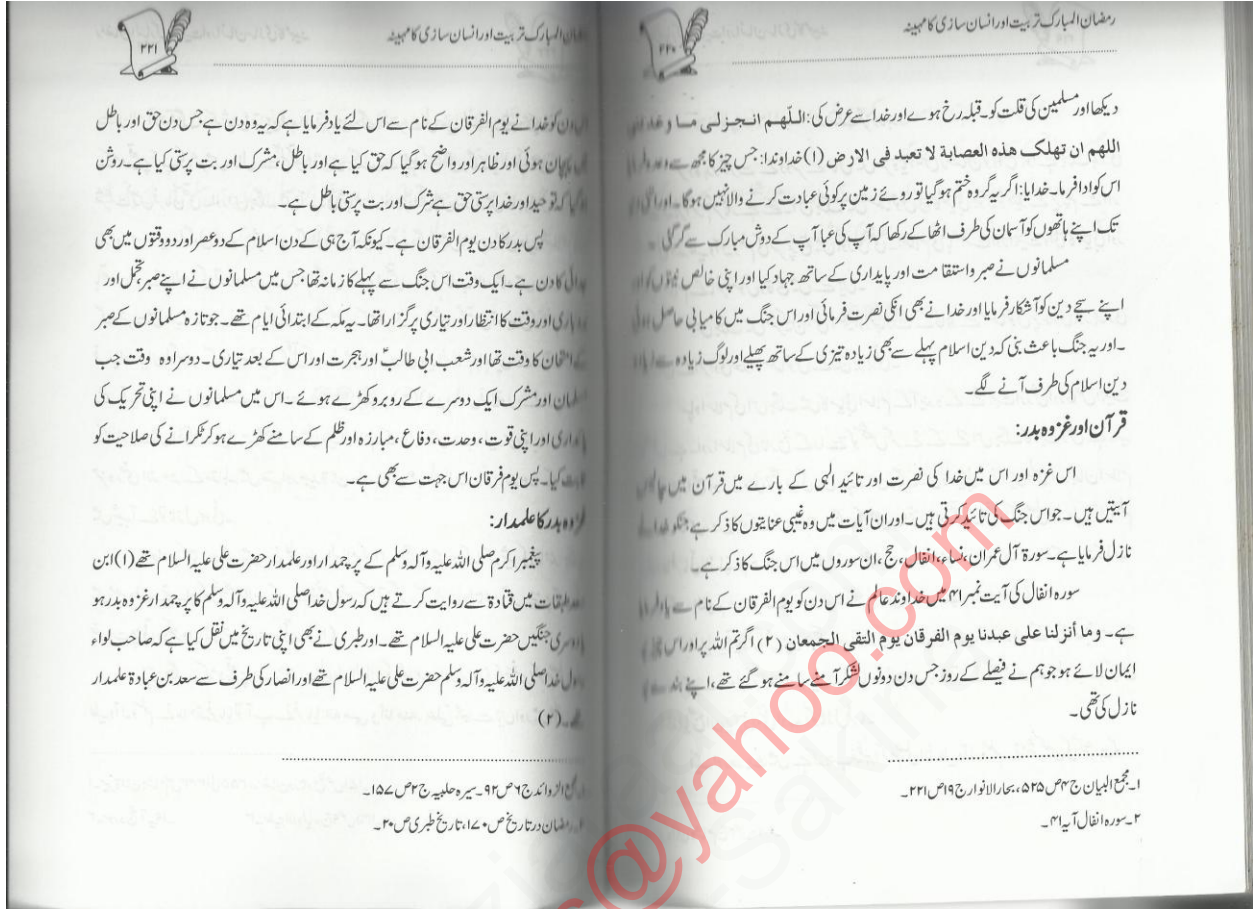 رمضان المبارک تربیت اور انسان سازی کا مہینہ
۲۲۰
دیکھا اور مسلمین کی قلت کو۔ قبلہ رخ ہوے اور خدا سے عرض کی: اللّٰھم انجزلی ما وعدتنی
اللھم ان تھلک ھذہ العصابة لا تعبد فی الارض (۱) خداوندا: جس چیز کا مجھ سے وعدہ فرمایا
اس کو ادا فرما۔ خدایا: اگر یہ گروہ ختم ہو گیا تو روئے زمین پر کوئی عبادت کرنے والا نہیں ہوگا۔ اور اتنی
تک اپنے ہاتھوں کو آسمان کی طرف اٹھا کے رکھا کہ آپ کی عبا آپ کے دوش مبارک سے گر گئی۔
مسلمانوں نے صبر و استقامت اور پایداری کے ساتھ جہاد کیا اور اپنی خالص نیتوں کو اور
اپنے سچے دین کو آشکار فرمایا اور خدا نے بھی انکی نصرت فرمائی اور اس جنگ میں کامیابی حاصل ہوئی
۔ اور یہ جنگ باعث بنی کہ دین اسلام پہلے سے بھی زیادہ تیزی کے ساتھ پھیلے اور لوگ زیادہ سے زیادہ
دین اسلام کی طرف آنے لگے۔
قرآن اور غزوہ بدر:
اس غزہ اور اس میں خدا کی نصرت اور تائید الٰہی کے بارے میں قرآن میں چالیس
آیتیں ہیں۔ جو اس جنگ کی تائید کرتی ہیں۔ اور ان آیات میں وہ غیبی عنایتوں کا ذکر ہے جنکو خدا نے
نازل فرمایا ہے۔ سورۃ آل عمران، نساء، انفال، حج، ان سوروں میں اس جنگ کا ذکر ہے۔
سورہ انفال کی آیت نمبر ۴۱ میں خداوند عالم نے اس دن کو یوم الفرقان کے نام سے یاد فرمایا
ہے۔ وما أنزلنا علی عبدنا یوم الفرقان یوم التقی الجمعان (۲) اگر تم اللہ پر اور اس
ایمان لائے ہو جو ہم نے فیصلے کے روز جس دن دونوں لشکر آمنے سامنے ہو گئے تھے، اپنے بندے
نازل کی تھی۔
۱۔ مجمع البیان ج ۴ ص ۵۲۵، بحار الانوار ج ۱۹ ص ۲۲۱۔
۲۔ سورہ انفال آیہ ۴۱۔
رمضان المبارک تربیت اور انسان سازی کا مہینہ
۲۲۱
اس دن کو خدا نے یوم الفرقان کے نام سے اس لئے یاد فرمایا ہے کہ یہ وہ دن ہے جس دن حق اور باطل
کی پہچان ہوئی اور ظاہر اور واضح ہو گیا کہ حق کیا ہے اور باطل، شرک اور بت پرستی کیا ہے۔ روشن
ہو گیا کہ توحید اور خدا پرستی حق ہے شرک اور بت پرستی باطل ہے۔
پس بدر کا دن یوم الفرقان ہے۔ کیونکہ آج ہی کے دن اسلام کے دو عصر اور دو وقتوں میں بھی
جدائی کا دن ہے۔ ایک وقت اس جنگ سے پہلے کا زمانہ تھا جس میں مسلمانوں نے اپنے صبر، تحمل اور
بردباری اور وقت کا انتظار اور تیاری پر گزارا تھا۔ یہ مکہ کے ابتدائی ایام تھے۔ جو تازہ مسلمانوں کے صبر
کے امتحان کا وقت تھا اور شعب ابی طالبؑ اور ہجرت اور اس کے بعد تیاری۔ دوسرا وہ وقت جب
مسلمان اور مشرک ایک دوسرے کے روبرو کھڑے ہوئے۔ اس میں مسلمانوں نے اپنی تحریک کی
پایداری اور اپنی قوت، وحدت، دفاع، مبارزہ اور ظلم کے سامنے کھڑے ہو کر ٹکرانے کی صلاحیت کو
ثابت کیا۔ پس یوم فرقان اس جہت سے بھی ہے۔
غزوہ بدر کا علمدار:
پیغمبر اکرم صلی اللہ علیہ وآلہ وسلم کے پرچمدار اور علمدار حضرت علی علیہ السلام تھے (۱) ابن
سعد طبقات میں قتادۃ سے روایت کرتے ہیں کہ رسول خدا صلی اللہ علیہ وآلہ وسلم کا پرچمدار غزوہ بدر ہو
یا دوسری جنگیں حضرت علی علیہ السلام تھے۔ اور طبری نے بھی اپنی تاریخ میں نقل کیا ہے کہ صاحب لواء
رسول خدا صلی اللہ علیہ وآلہ وسلم حضرت علی علیہ السلام تھے اور انصار کی طرف سے سعد بن عبادۃ علمدار
تھے۔ (۲)
۱۔ مجمع الزوائد ج ۶ ص ۹۲۔ سیرہ حلبیہ ج ۲ ص ۱۵۷۔
۲۔ رمضان در تاریخ ص ۱۷۰، تاریخ طبری ص ۲۰۔
@yahoo.com